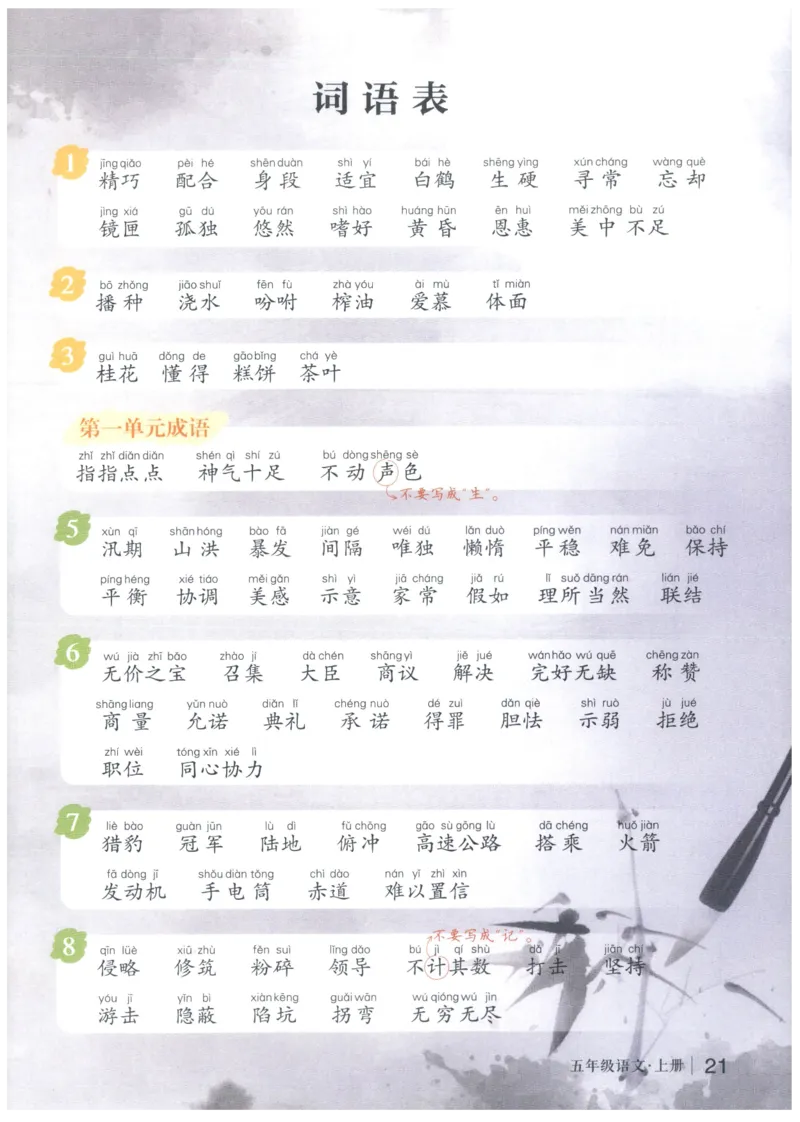 词语表
1
jīng qiǎo pèi hé shēn duàn shì yí bái hè shēng yìng xún cháng wàng què
精巧 配合 身段 适宜 白鹤 生硬 寻常 忘却
jìng xiá gū dú yōu rán shì hào huáng hūn ēn huì měi zhōng bù zú
镜匣 孤独 悠然 嗜好 黄昏 恩惠 美中不足
2
bō zhǒng jiāo shuǐ fēn fù zhà yóu ài mù tǐ miàn
播种 浇水 吩咐 榨油 爱慕 体面
3
guì huā dǒng de gāo bǐng chá yè
桂花 懂得 糕饼 茶叶
第一单元成语
zhǐ zhǐ diǎn diǎn shén qì shí zú bú dòng shēng sè
指指点点 神气十足 不动声色
不要写成“生”。
5
xùn qī shān hóng bào fā jiàn gé wéi dú lǎn duò píng wěn nán miǎn bǎo chí
汛期 山洪 暴发 间隔 唯独 懒惰 平稳 难免 保持
píng héng xié tiáo měi gǎn shì yì jiā cháng jiǎ rú lǐ suǒ dāng rán lián jié
平衡 协调 美感 示意 家常 假如 理所当然 联结
6
wú jià zhī bǎo zhào jí dà chén shāng yì jiě jué wán hǎo wú quē chēng zàn
无价之宝 召集 大臣 商议 解决 完好无缺 称赞
shāng liang yǔn nuò diǎn lǐ chéng nuò dé zuì dǎn qiè shì ruò jù jué
商量 允诺 典礼 承诺 得罪 胆怯 示弱 拒绝
zhí wèi tóng xīn xié lì
职位 同心协力
7
liè bào guàn jūn lù dì fǔ chōng gāo sù gōng lù dā chéng huǒ jiàn
猎豹 冠军 陆地 俯冲 高速公路 搭乘 火箭
fā dòng jī shǒu diàn tǒng chì dào nán yǐ zhì xìn
发动机 手电筒 赤道 难以置信
不要写成“记”。
8
qīn lüè xiū zhù fěn suì lǐng dǎo bú jì qí shù dǎ jī jiān chí
侵略 修筑 粉碎 领导 不计其数 打击 坚持
yóu jī yǐn bì xiàn kēng guǎi wān wú qióng wú jìn
游击 隐蔽 陷坑 拐弯 无穷无尽
五年级语文·上册 21